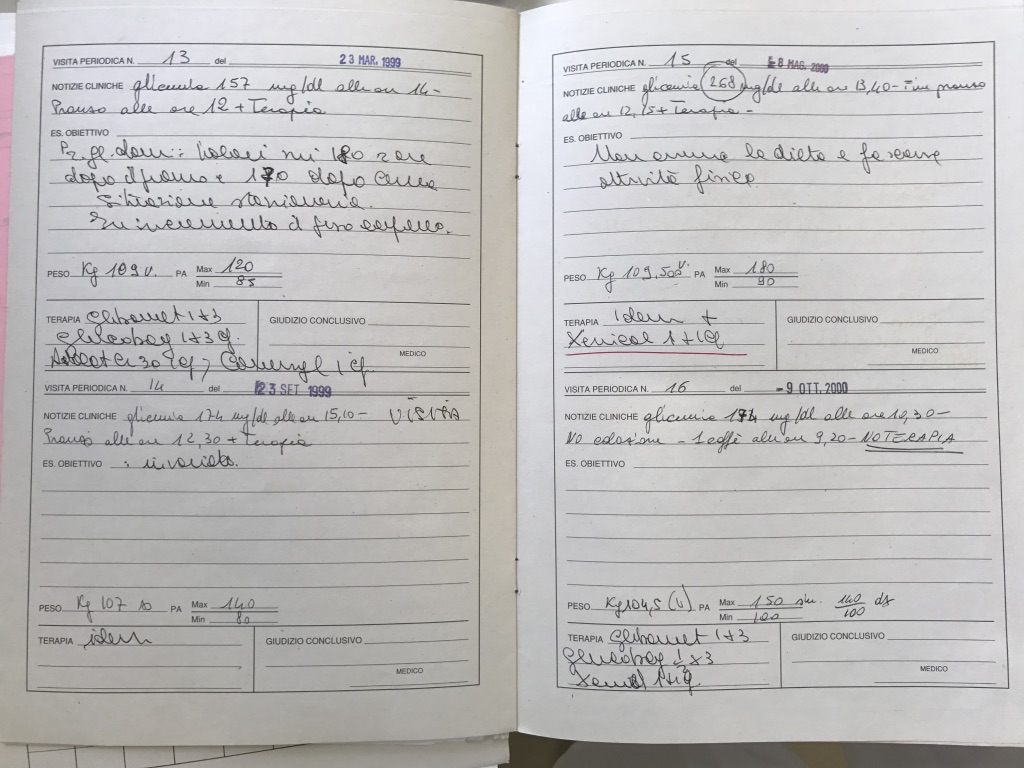 VISITA PERIODICA N. 13 del 23 MAR. 1999
NOTIZIE CLINICHE glicemia 157 mg/dl alle ore 14-
Pranzo alle ore 12 + Terapia
ES. OBIETTIVO
gl. dom: valori sui 180 2 ore
dopo il pranzo e 170 dopo cena
Situazione stazionaria.
In incremento il peso corporeo.
PESO Kg 109 v. PA Max 120
Min 85
TERAPIA Glibomet 1+3
GIUDIZIO CONCLUSIVO
Glucobay 1x3 cp.
30 1 cp, 1 cp.
MEDICO
VISITA PERIODICA N. 14 del 23 SET. 1999
NOTIZIE CLINICHE glicemia 174 mg/dl alle ore 15,10-
Pranzo alle ore 12,30 + Terapia
ES. OBIETTIVO : invariato.
PESO Kg 107 PA Max 140
Min 80
TERAPIA idem
GIUDIZIO CONCLUSIVO
MEDICO
VISITA PERIODICA N. 15 del 8 MAG. 2000
NOTIZIE CLINICHE glicemia 268 mg/dl alle ore 13,40- Fine pranzo
alle ore 12,15 + Terapia -
ES. OBIETTIVO
Non osserva la dieta e fa scarsa
attività fisica
PESO Kg 109,500 v. PA Max 180
Min 90
TERAPIA Idem +
GIUDIZIO CONCLUSIVO
Xenical 1+1 cp
MEDICO
VISITA PERIODICA N. 16 del -9 OTT. 2000
NOTIZIE CLINICHE glicemia 174 mg/dl alle ore 10,30-
NO colazione - 1 caffè alle ore 9,20- NO TERAPIA
ES. OBIETTIVO
PESO Kg 104,5 (v) PA Max 150 sin. 140 dx
Min 100 100
TERAPIA Glibomet 1+3
GIUDIZIO CONCLUSIVO
Glucobay x3
Xenical 1+1 cp.
MEDICO